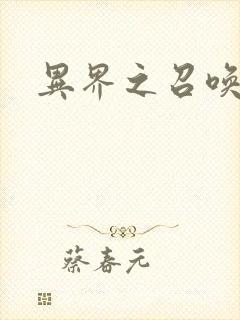 異界之召喚
蔡春元